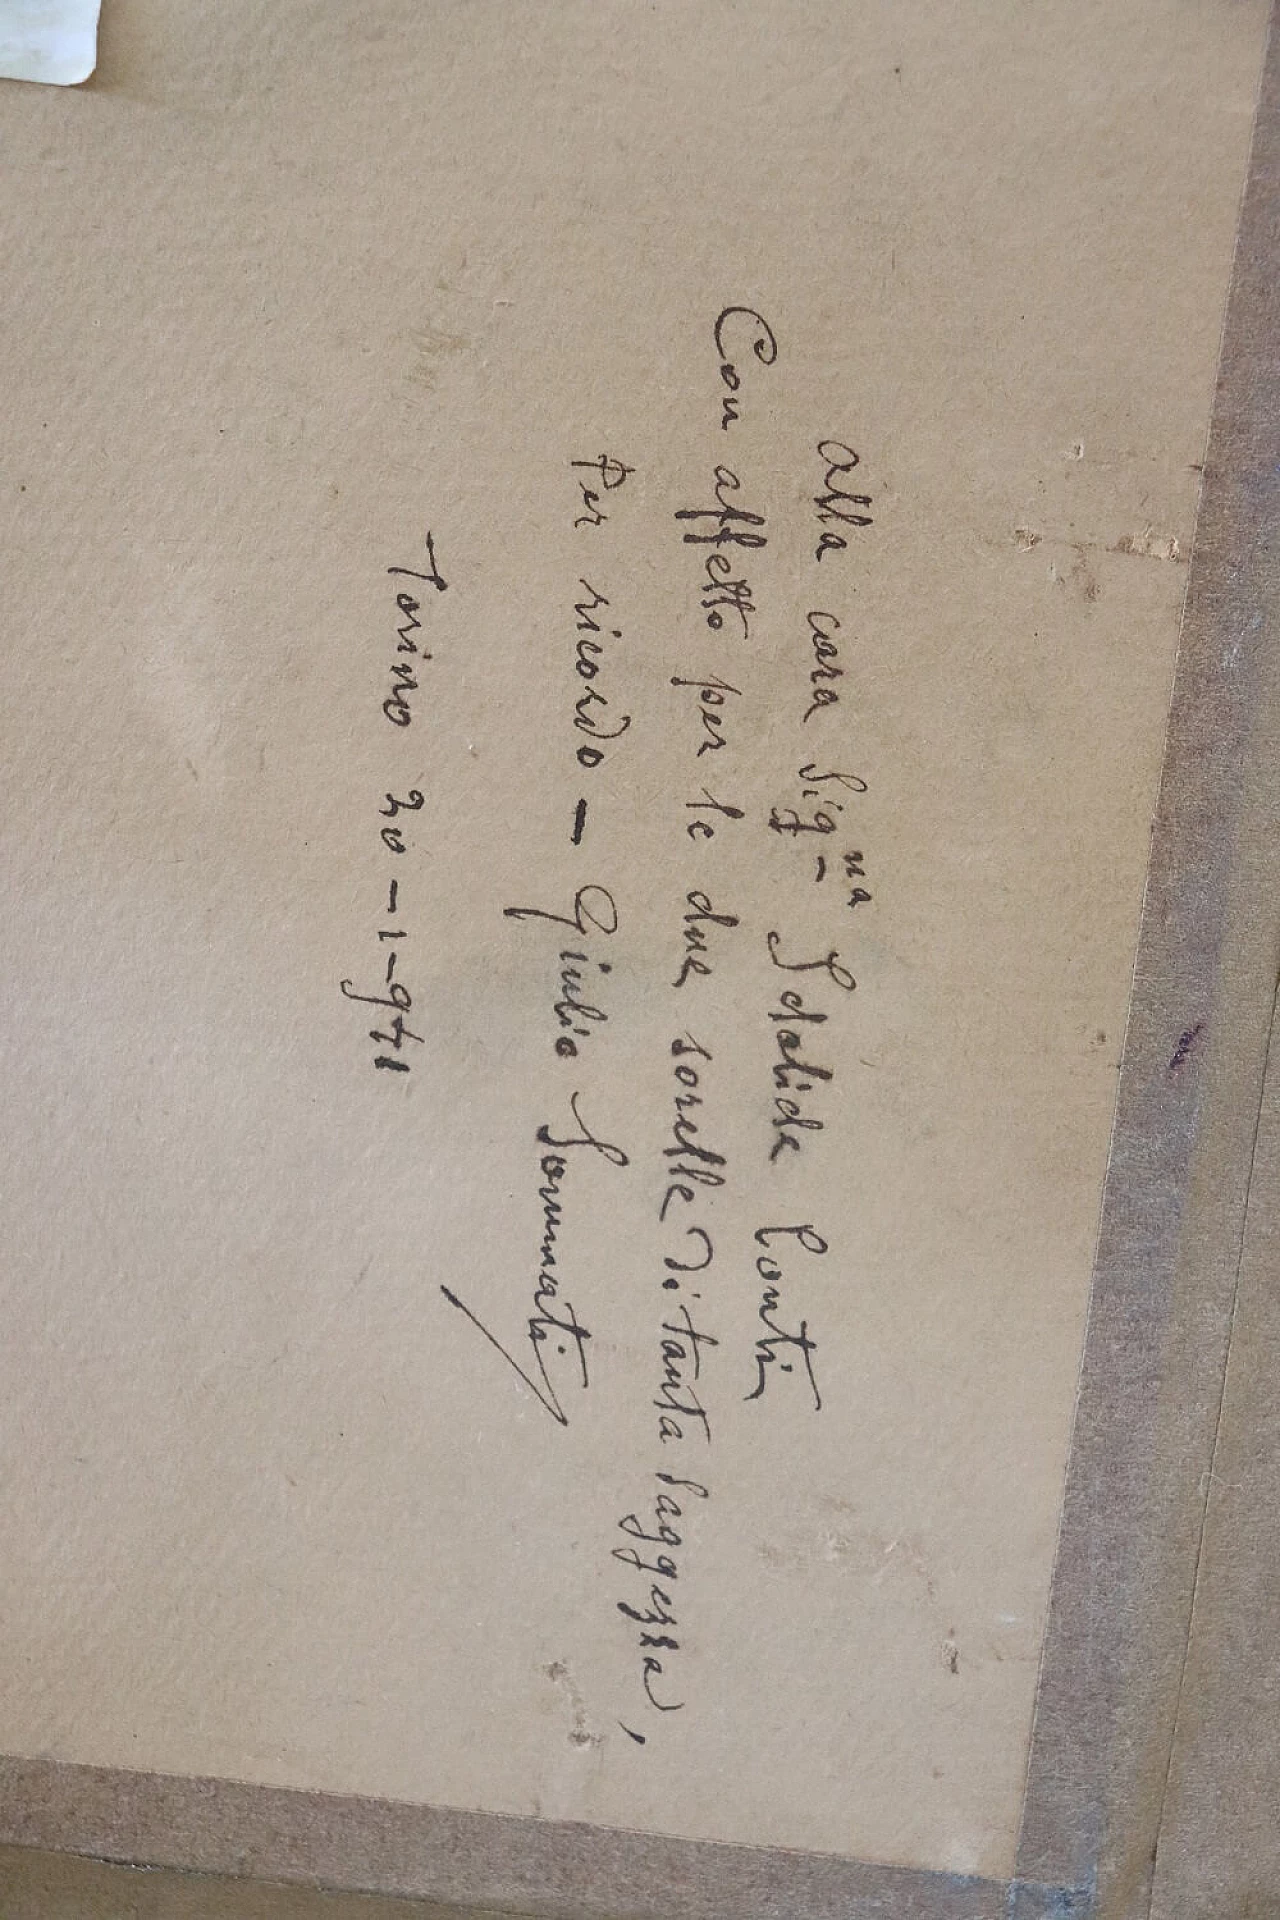 Alla cara Signa Idalide Conti
Con affetto per le due sorelle di tanta saggezza,
Per ricordo - Giulio Sommati
Torino 20-1-941